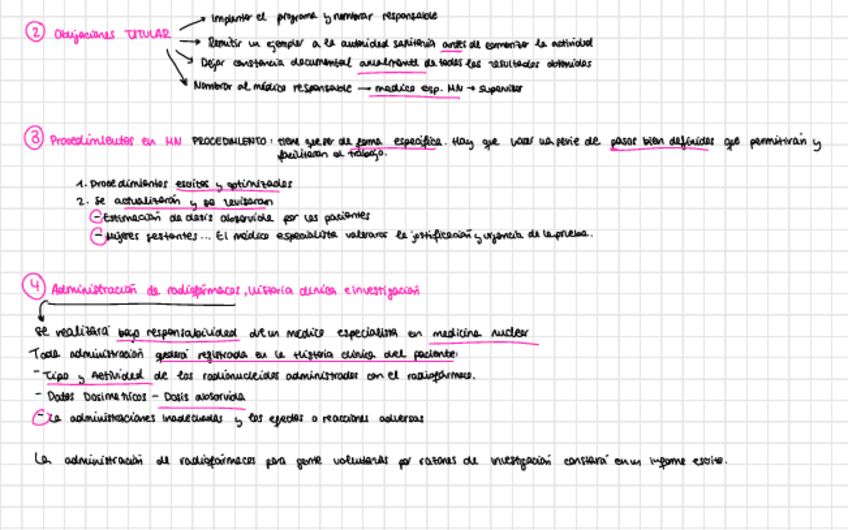 Implantar el programa y nombrar responsable
② Obligaciones TITULAR
Remitir un ejemplar a la autoridad sanitaria antes de comenzar la actividad
Dejar constancia documental anualmente de todos los resultados obtenidos
Nombrar al médico responsable → medico esp. MN → supervisor
③ Procedimientos en MN PROCEDIMIENTO: tiene que ser de forma específica. Hay que hacer una serie de pasos bien definidos que permitirán y
facilitaran el trabajo.
1. Procedimientos escritos y optimizados
2. Se actualizarán y se revisaran
- Estimación de dosis absorvida por los pacientes
- Mujeres gestantes... El médico especialista valorara la justificación y urgencia de la prueba.
④ Administración de radiofármacos, historia clínica e investigación
Se realizará bajo responsabilidad de un médico especialista en medicina nuclear
Toda administración quedará registrada en la Historia clínica del paciente:
- Tipo y Actividad de los radionucleidos administrados con el radiofármaco.
- Datos Dosimetricos - Dosis absorvida
- La administraciones inadecuadas y los efectos o reacciones adversas
La administración de radiofármacos para gente voluntarias por razones de investigación constará en un informe escrito.